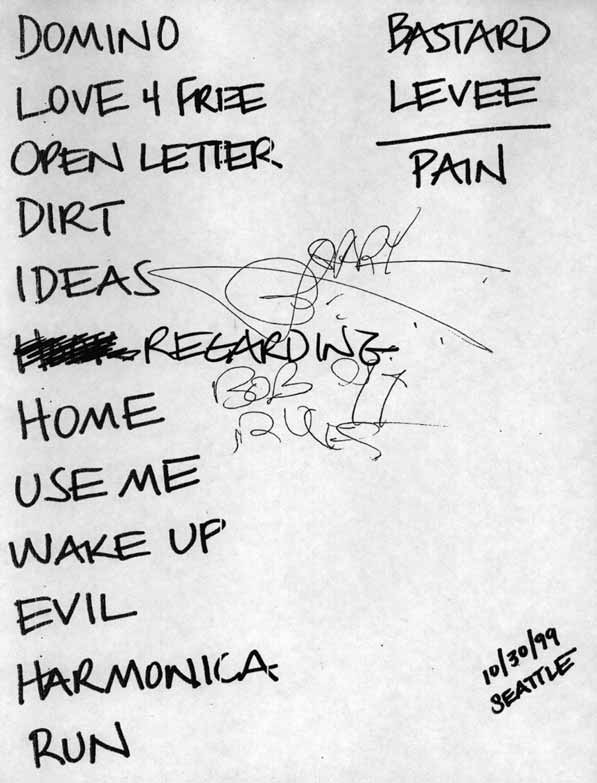 DOMINO
LOVE 4 FREE
OPEN LETTER
DIRT
IDEAS
REGARDING
HOME
USE ME
WAKE UP
EVIL
HARMONICA
RUN
BASTARD
LEVEE
PAIN
GARY
BOB
10/30/99
SEATTLE